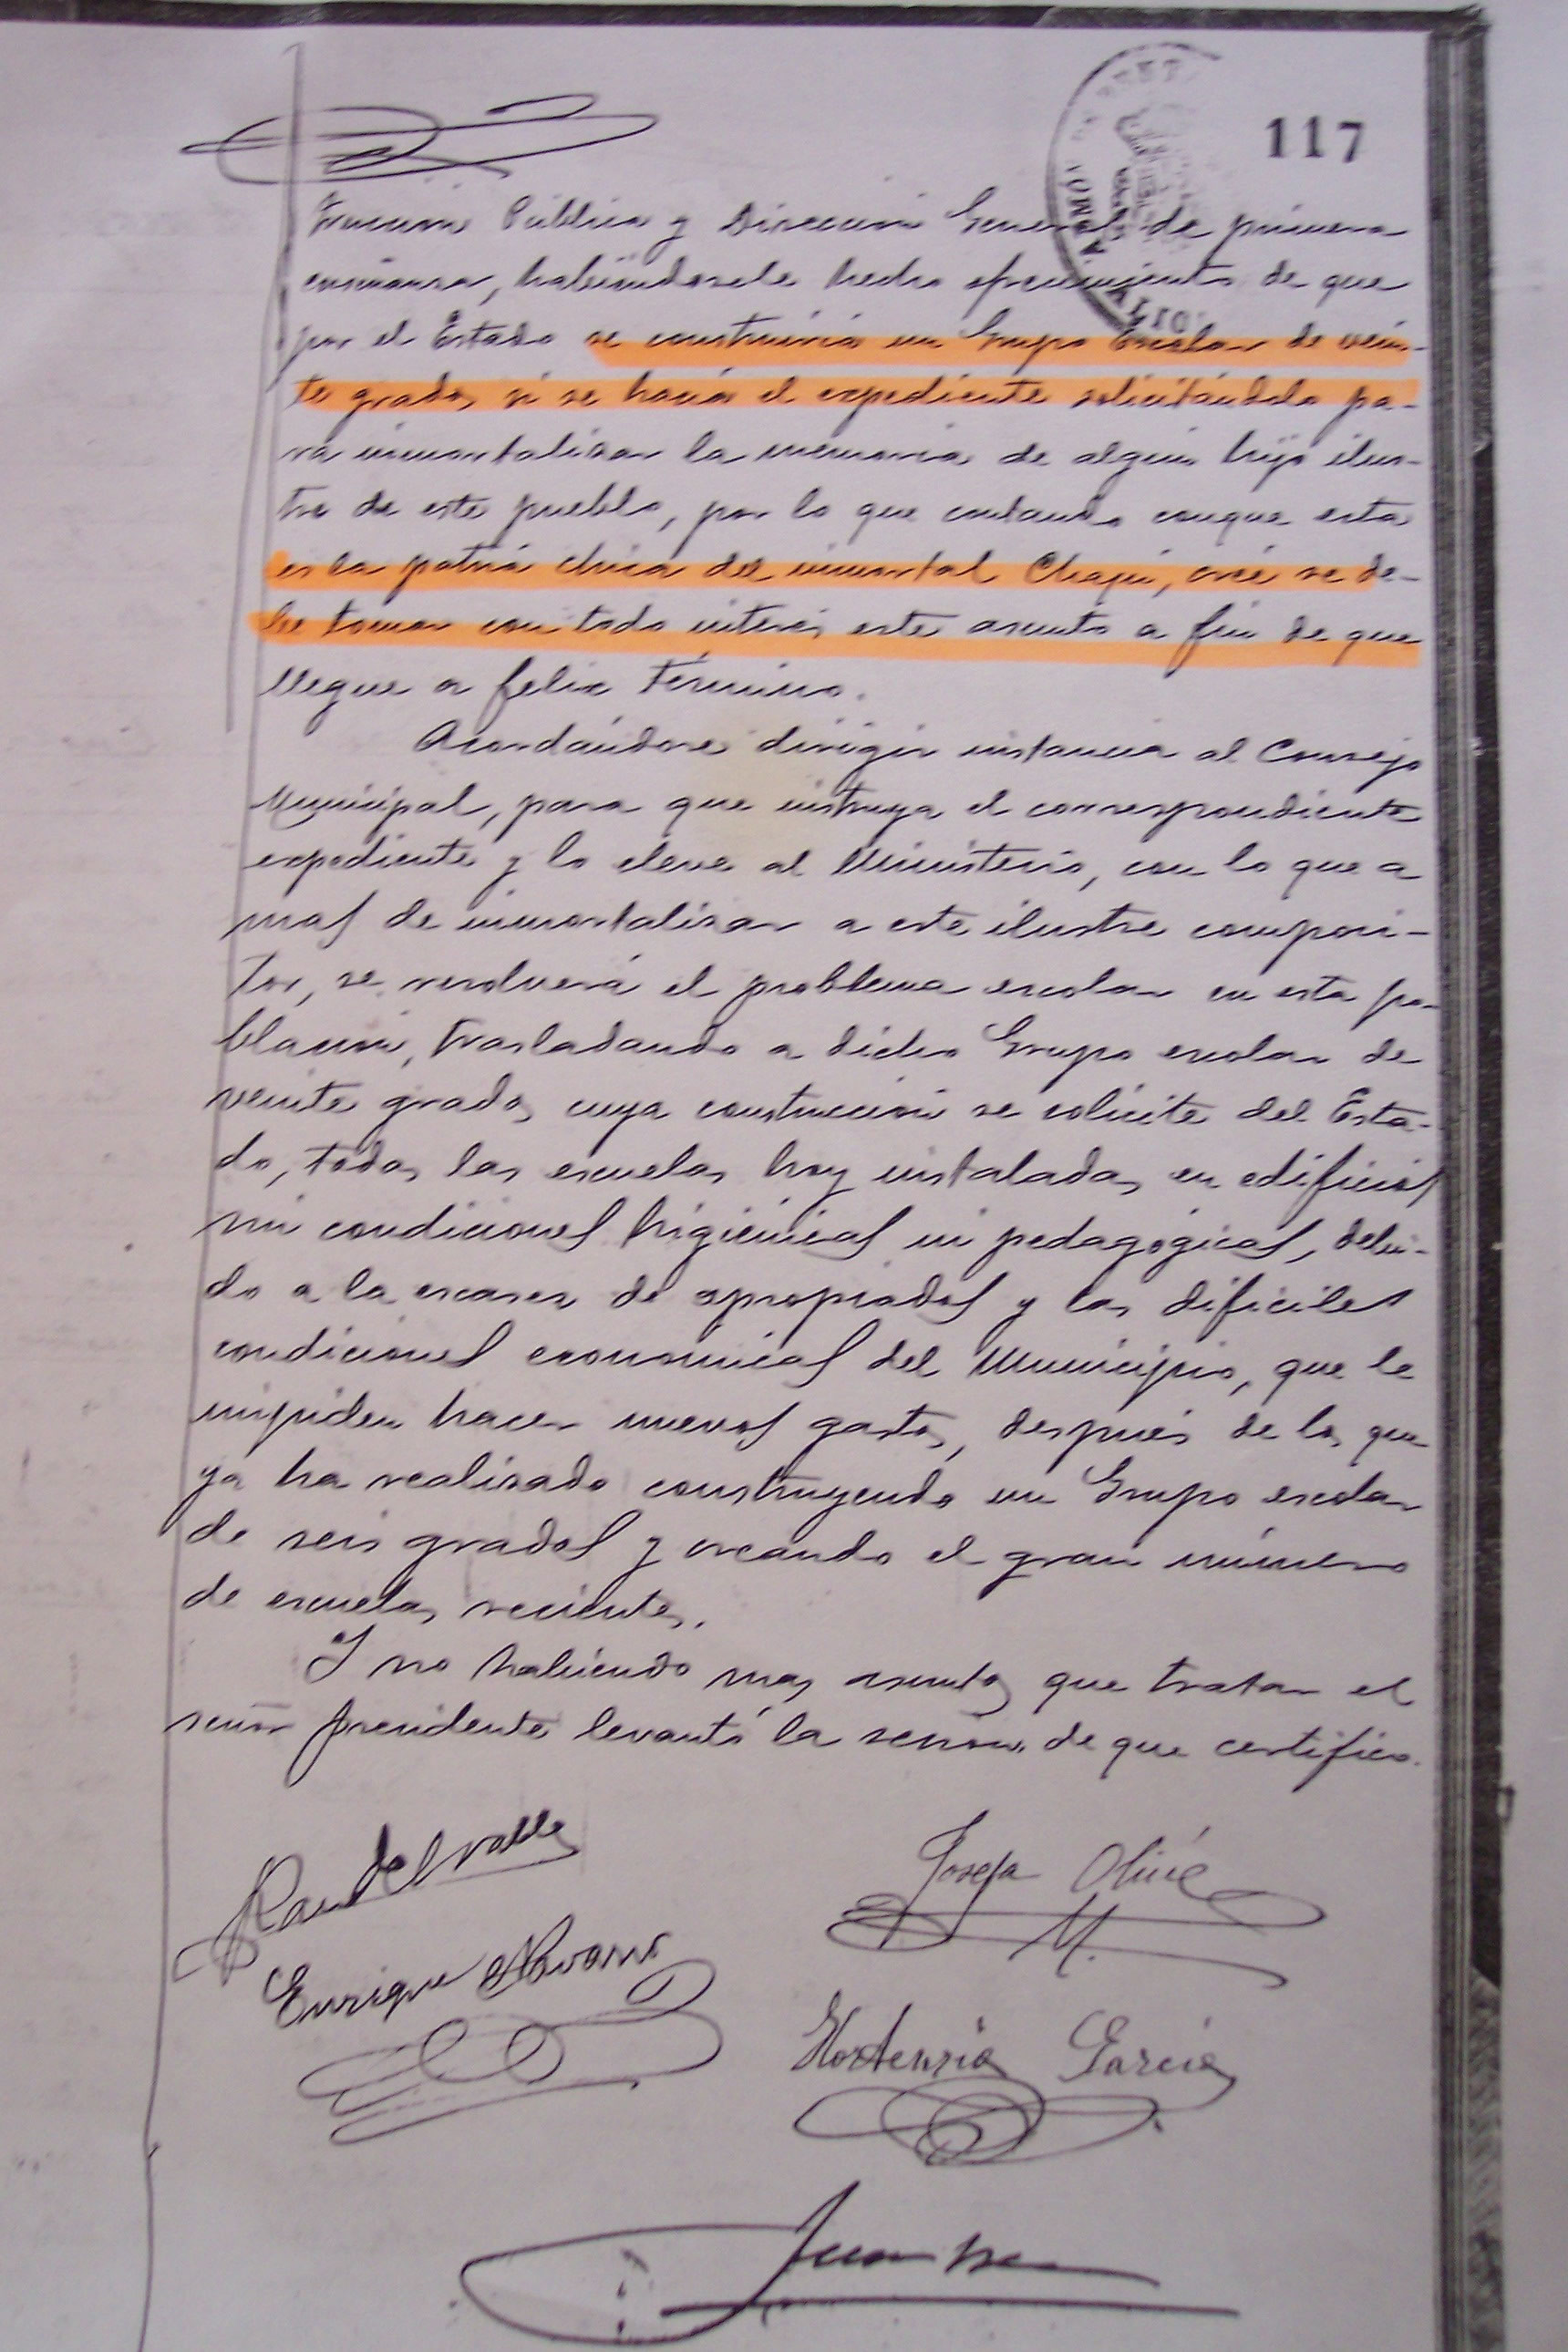 117
trucción Pública y Dirección General de primera
enseñanza, habiéndosele hecho ofrecimiento de que
por el Estado se construiría un Grupo Escolar de vein-
te grados si se hacía el expediente solicitándolo pa-
ra inmortalizar la memoria de algún hijo ilus-
tre de este pueblo, por lo que contando conque esta
es la patria chica del inmortal Chapí, cree se de-
be tomar con todo interés este asunto a fin de que
llegue a felix término.
Acordándose dirigir instancia al Consejo
Municipal, para que instruya el correspondiente
expediente y lo eleve al Ministerio, con lo que a
mas de inmortalizar a este ilustre composi-
tor, se resolverá el problema escolar en esta po-
blación, trasladando a dicho Grupo escolar de
veinte grados cuya construcción se solicite del Esta-
do, todas las escuelas hoy instaladas en edificios
sin condiciones higiénicas ni pedagógicas, debi-
do a la escasez de apropiados y las difíciles
condiciones económicas del Municipio, que le
impiden hacer nuevos gastos, después de los que
ya ha realizado construyendo un Grupo escolar
de seis grados y creando el gran número
de escuelas recientes.
Y no habiendo mas asuntos que tratar el
señor presidente levantó la sesión, de que certifico.
del Valle
Josefa Olivé
M.
Enrique Navarro
Hortensia García
Juan